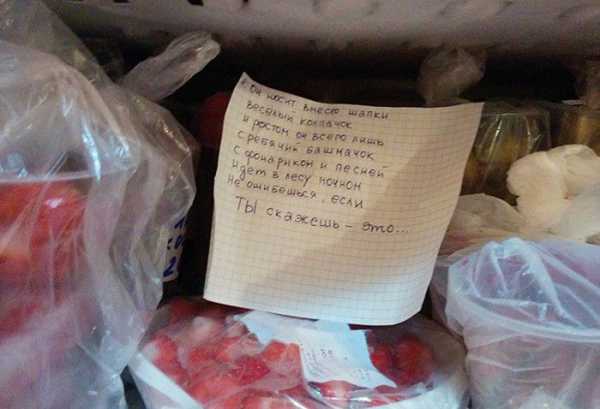 Он носит вместо шапки
веселый колпачок
и ростом он всего лишь
с ребячий башмачок
с фонариком и песней
идет в лесу ночном
не ошибешься, если
ТЫ скажешь - это...